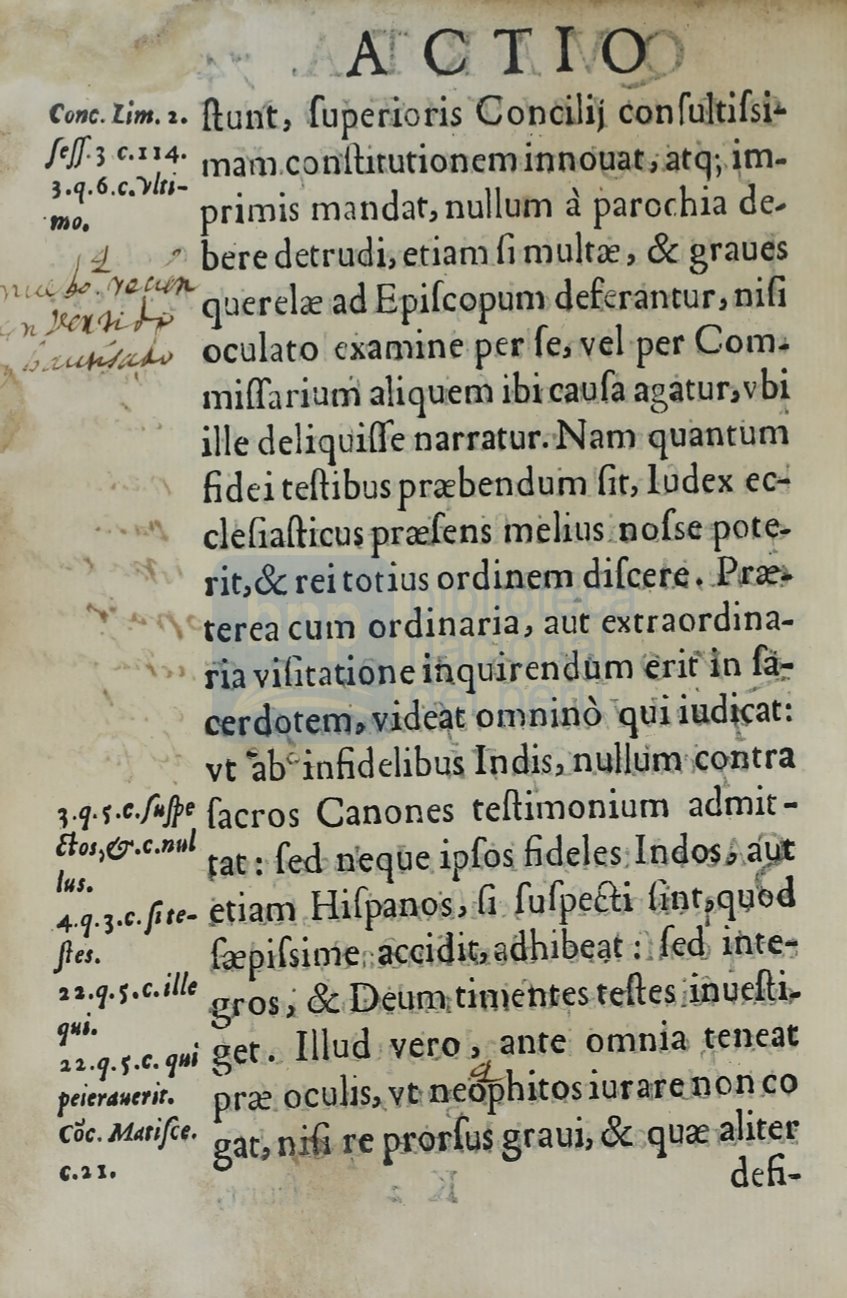 ACTIO
Conc. Lim. 2.
seſſ. 3 c.114.
3.q.6.c.vlti-
mo.
ſtunt, ſuperioris Concilij conſultiſsi-
mam conſtitutionem innouat, atq; im-
primis mandat, nullum à parochia de-
bere detrudi, etiam ſi multæ, & graues
querelæ ad Epiſcopum deferantur, niſi
oculato examine per ſe, vel per Com-
miſſarium aliquem ibi cauſa agatur, vbi
ille deliquiſſe narratur. Nam quantum
fidei teſtibus præbendum ſit, Iudex ec-
cleſiaſticus præſens melius noſse pote-
rit, & rei totius ordinem diſcere. Præ-
terea cum ordinaria, aut extraordina-
ria viſitatione inquirendum erit in ſa-
cerdotem, videat omninò qui iudicat:
vt ab infidelibus Indis, nullum contra
ſacros Canones teſtimonium admit-
tat: ſed neque ipſos fideles Indos, aut
etiam Hiſpanos, ſi ſuſpecti ſint, quod
ſæpiſsime accidit, adhibeat: ſed inte-
gros, & Deum timentes teſtes inueſti-
get. Illud vero, ante omnia teneat
præ oculis, vt neophitos iurare non co
gat, niſi re prorſus graui, & quæ aliter
defi-
3.q.5.c.ſuſpe
ctos, &.c.nul
lus.
4.q.3.c.ſi te-
ſtes.
22.q.5.c.ille
qui.
22.q.5.c. qui
peierauerit.
Cõc. Matiſce.
c.21.